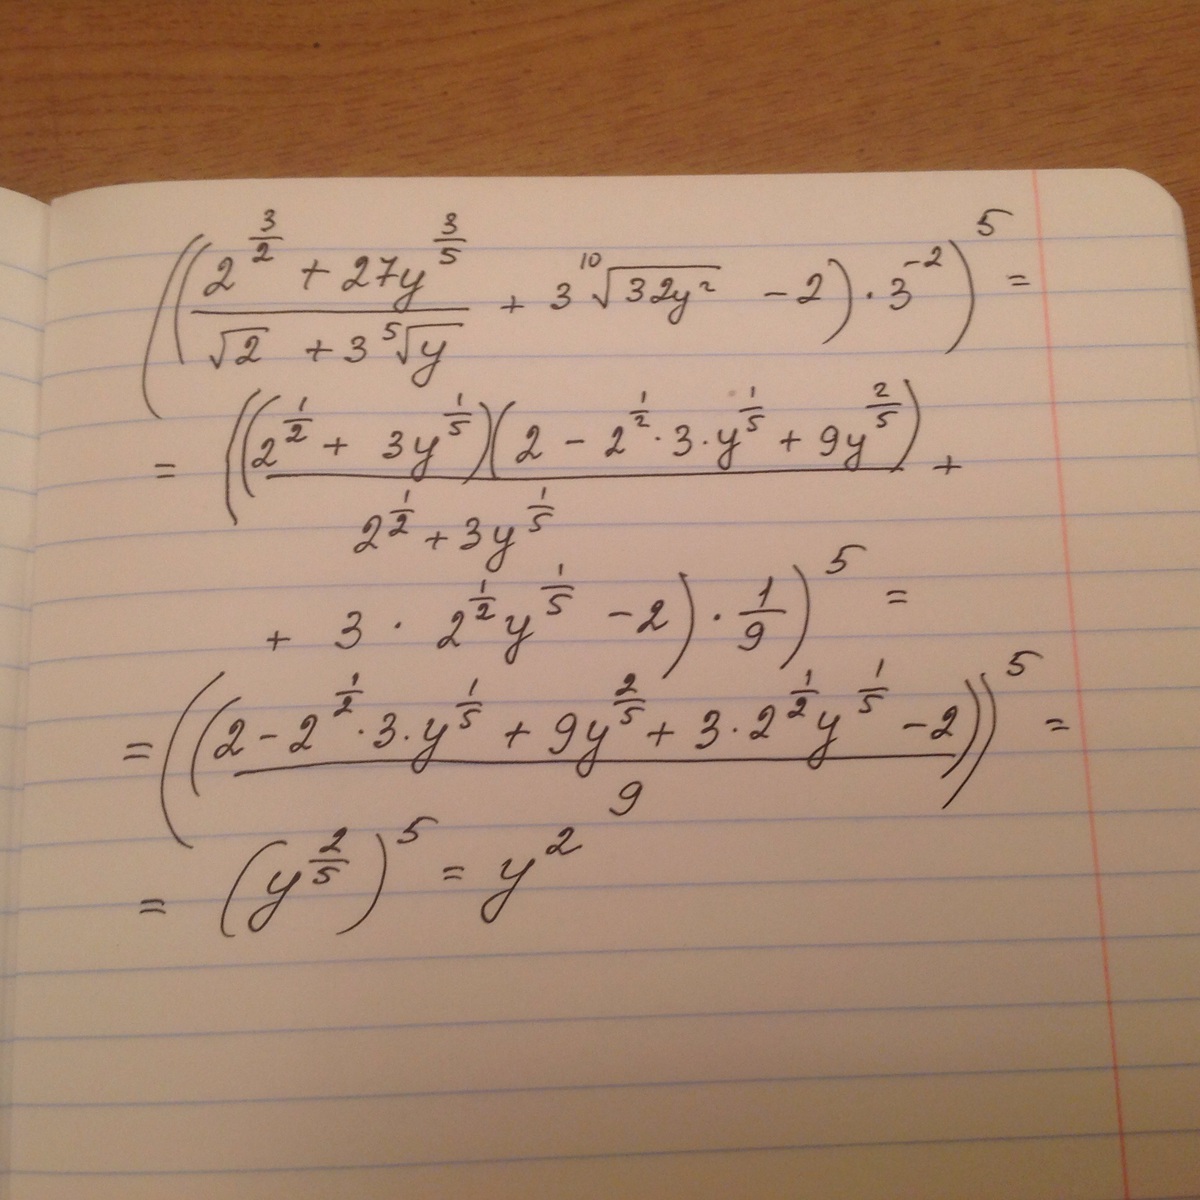 ((\frac{2^{\frac{3}{2}} + 27y^{\frac{3}{5}}}{\sqrt{2} + 3\sqrt[5]{y}} + 3\sqrt[10]{32y^2} - 2) \cdot 3^{-2})^5 =
= ((\frac{(2^{\frac{1}{2}} + 3y^{\frac{1}{5}})(2 - 2^{\frac{1}{2}} \cdot 3 \cdot y^{\frac{1}{5}} + 9y^{\frac{2}{5}})}{2^{\frac{1}{2}} + 3y^{\frac{1}{5}}} +
+ 3 \cdot 2^{\frac{1}{2}} y^{\frac{1}{5}} - 2) \cdot \frac{1}{9})^5 =
= ((\frac{2 - 2^{\frac{1}{2}} \cdot 3 \cdot y^{\frac{1}{5}} + 9y^{\frac{2}{5}} + 3 \cdot 2^{\frac{1}{2}} y^{\frac{1}{5}} - 2}{9}))^5 =
= (y^{\frac{2}{5}})^5 = y^2